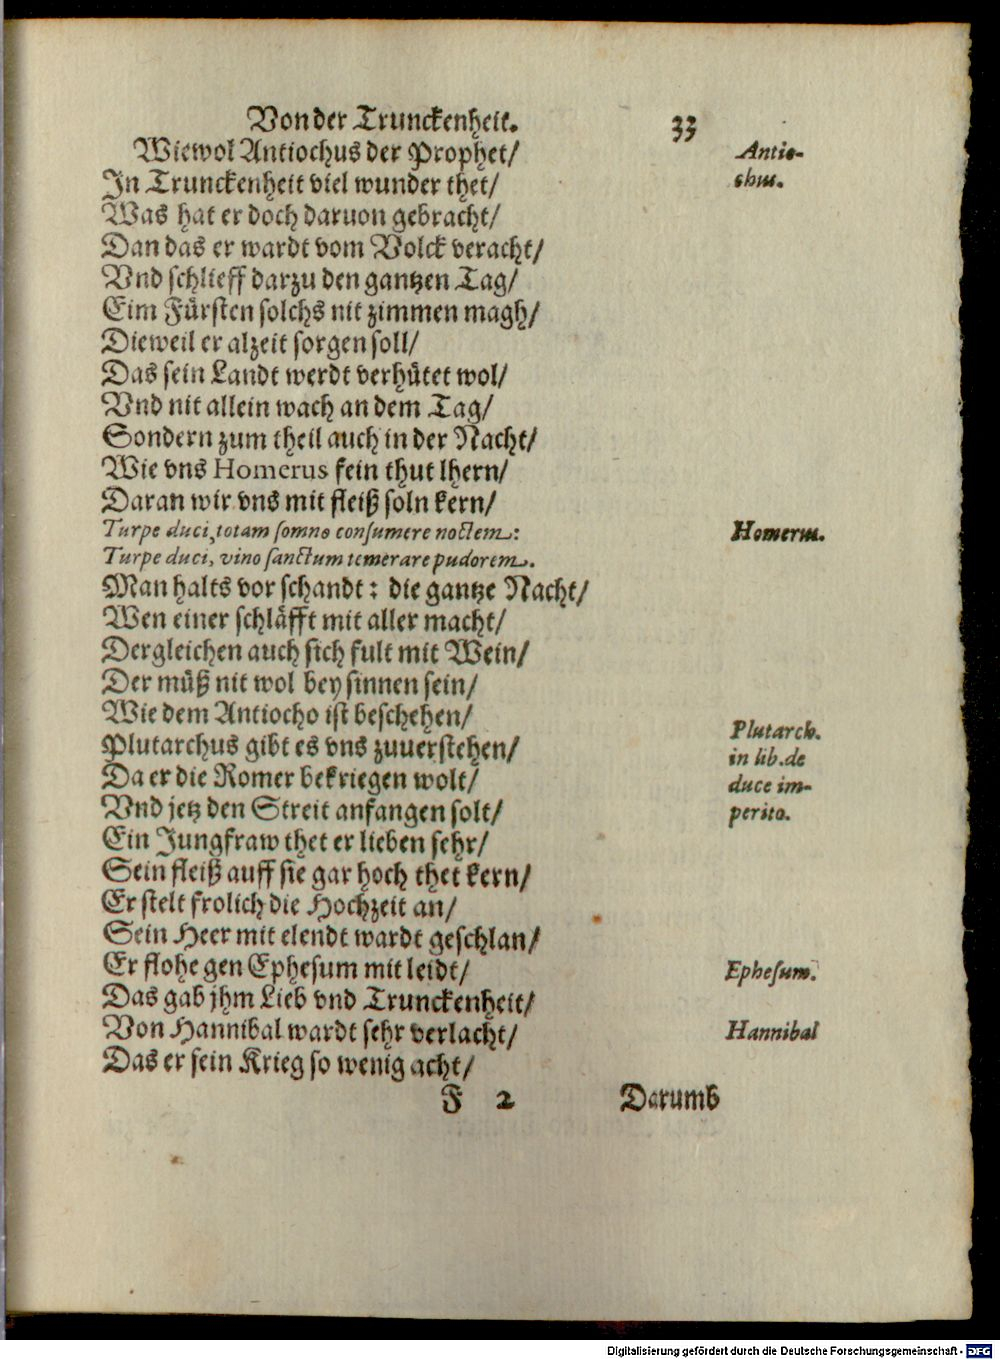 Von der Trunckenheit. 33
Wiewol Antiochus der Prophet/
Antio-
chus.
In Trunckenheit viel wunder thet/
Was hat er doch daruon gebracht/
Dan das er wardt vom Volck veracht/
Vnd schlieff darzu den gantzen Tag/
Eim Fürsten solchs nit zimmen magh/
Dieweil er alzeit sorgen soll/
Das sein Landt werdt verhütet wol/
Vnd nit allein wach an dem Tag/
Sondern zum theil auch in der Nacht/
Wie vns Homerus fein thut lhern/
Daran wir vns mit fleiß soln kern/
Turpe duci, totam somno consumere noctem:
Homerus.
Turpe duci, vino sanctum temerare pudorem.
Man halts vor schandt: die gantze Nacht/
Wen einer schläfft mit aller macht/
Dergleichen auch sich fult mit Wein/
Der müß nit wol bey sinnen sein/
Wie dem Antiocho ist beschehen/
Plutarchus gibt es vns zuuerstehen/
Plutarch.
in lib. de
duce im-
perito.
Da er die Romer bekriegen wolt/
Vnd jetz den Streit anfangen solt/
Ein Jungfraw thet er lieben sehr/
Sein fleiß auff sie gar hoch thet kern/
Er stelt frolich die Hochzeit an/
Sein Heer mit elendt wardt geschlan/
Er flohe gen Ephesum mit leidt/
Ephesum.
Das gab jhm Lieb vnd Trunckenheit/
Von Hannibal wardt sehr verlacht/
Hannibal
Das er sein Krieg so wenig acht/
F 2 Darumb
Digitalisierung gefördert durch die Deutsche Forschungsgemeinschaft - DFG